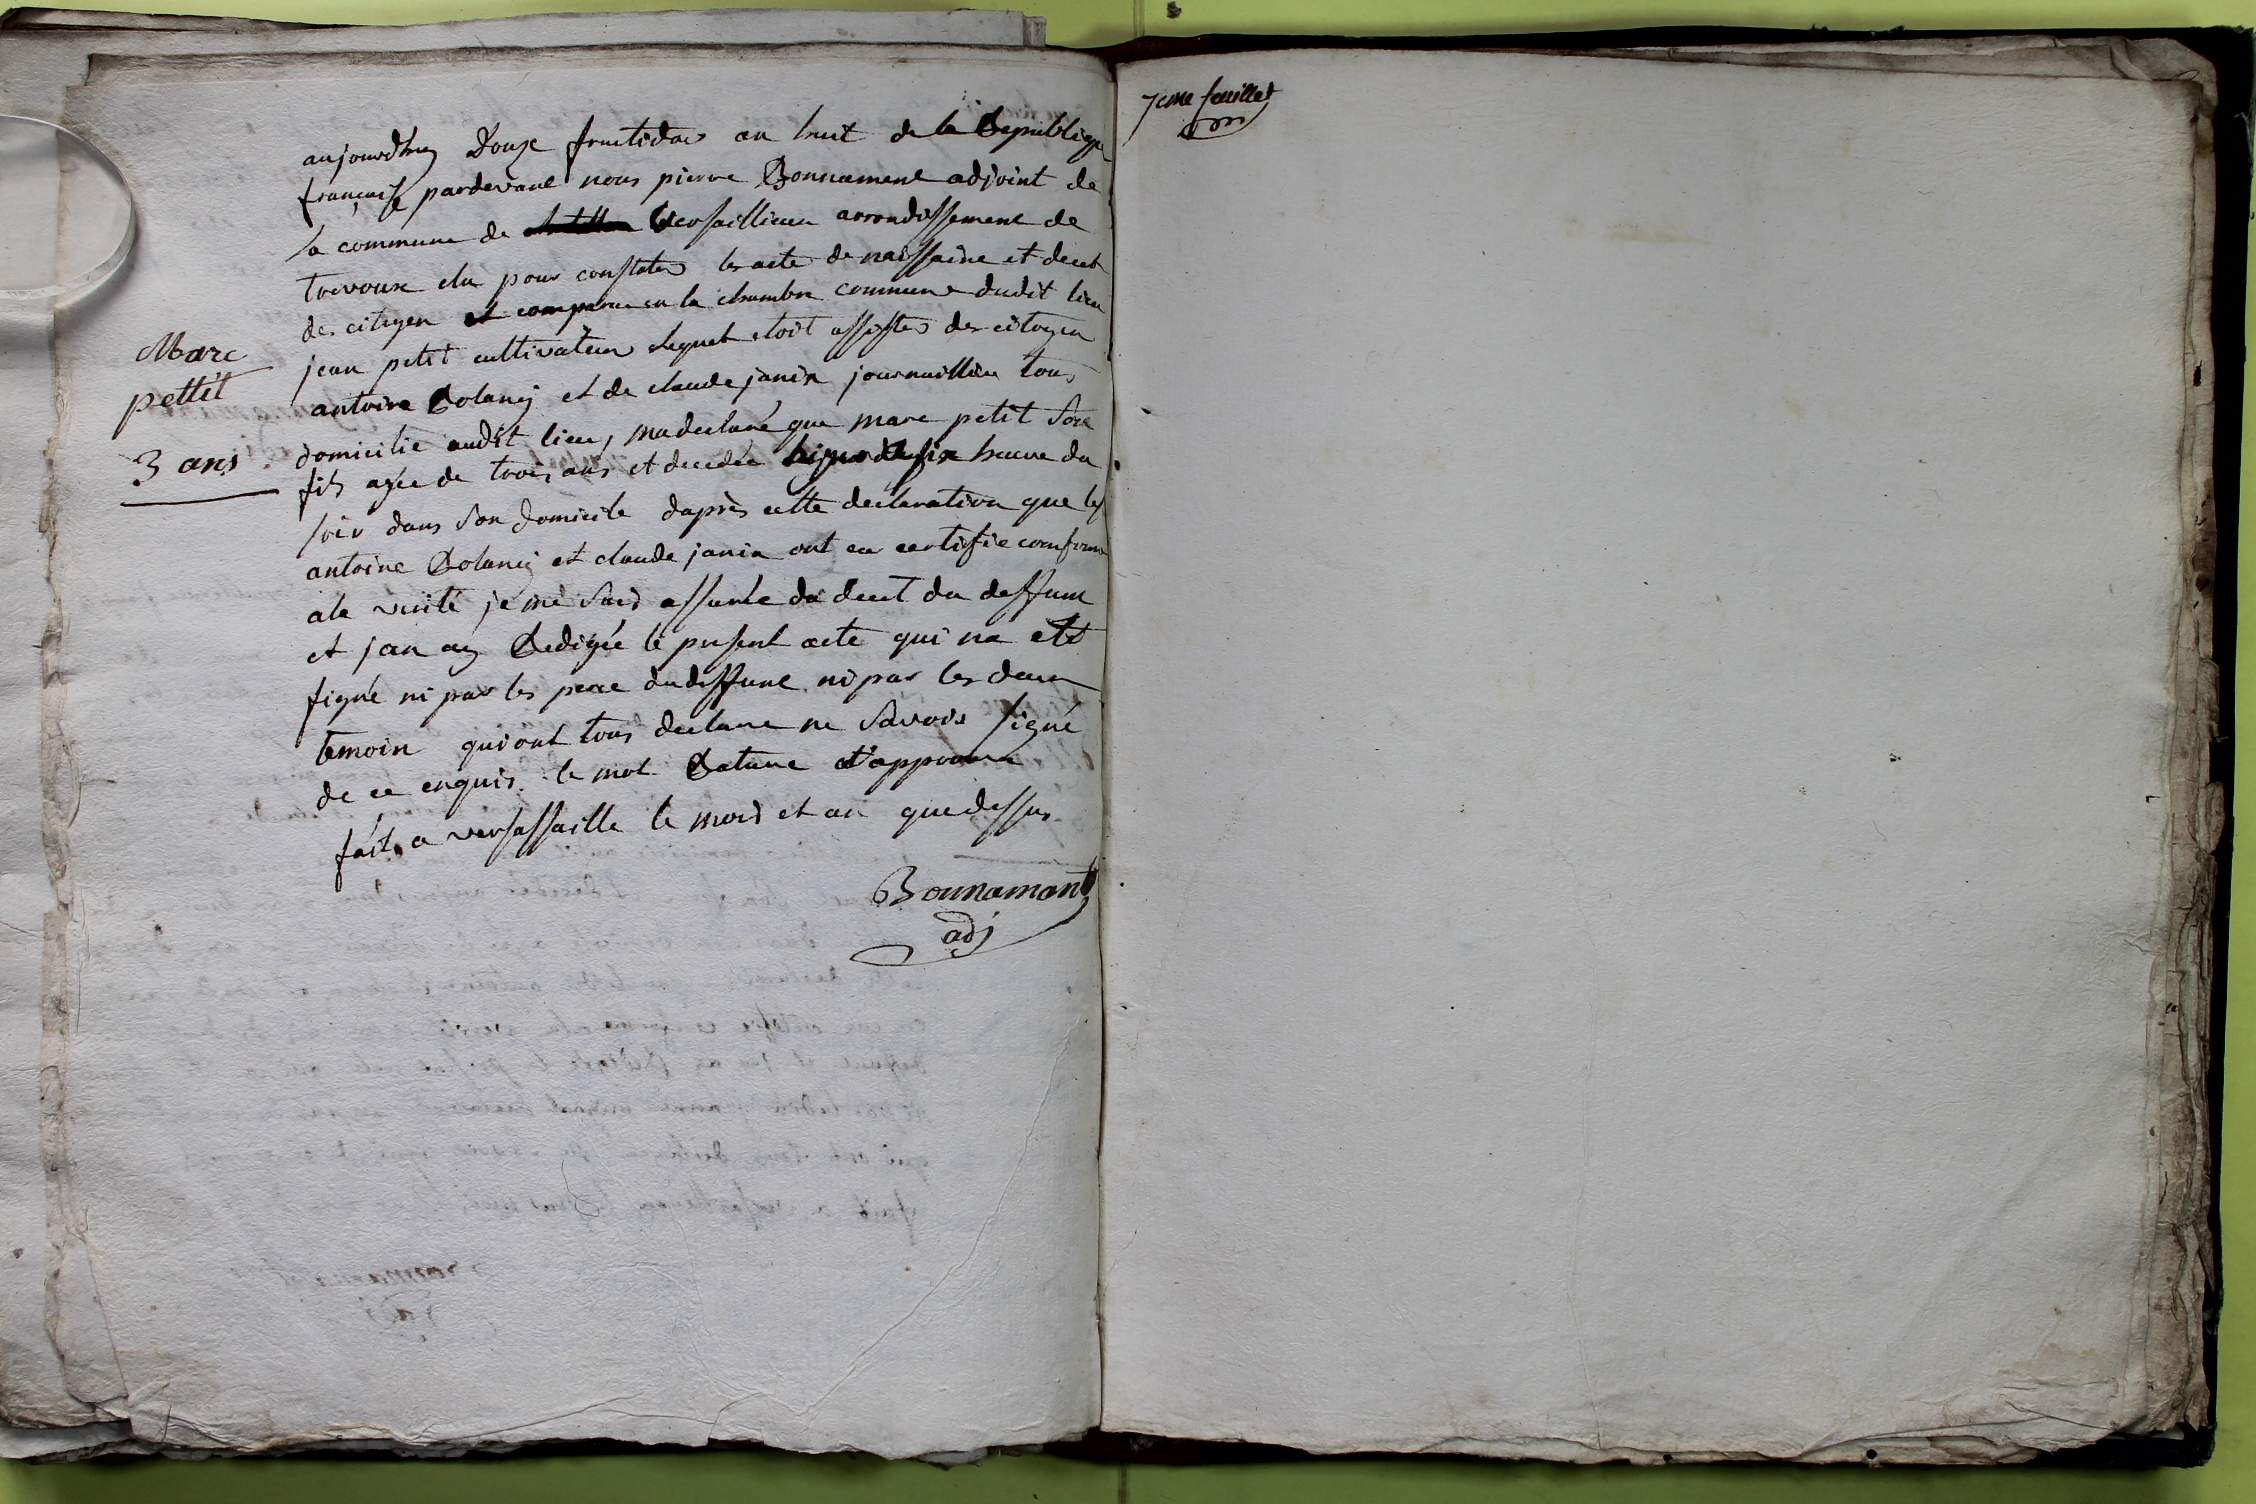 aujourdhuy Douze fructidor an huit de la Republique
française pardevant nous pierre Bonnament adjoint de
la commune de versaillieux arrondissement de
trevoux elu pour constater les acte de naissaine et decet
des citoyen est comparu en la chambre commune dudit lieu
jean petit cultivateur lequel etoit assister des citoyen
antoine Rolany et de claude janin journaillier tous
domicilie audit lieu, ma declaré que marc petit son
fils agée de trois ans et decedée heure du
soir dans son domicile daprès cette declaration que les
antoine Rolany et claude janin ont eu certifie comforme
ala verité je me suis assurée du decet du deffunt
et jan ay Redigée le present acte qui na eté
signé ni par les pere du deffunt ni par les deux
temoin qui ont tous declare ne savoir signé
de ce enquis. le mot Rature et approuvé
fait a versassaille le mois et an que dessus
Bonnamant
adj
Marc
pettit
3 ans
7eme feuillet